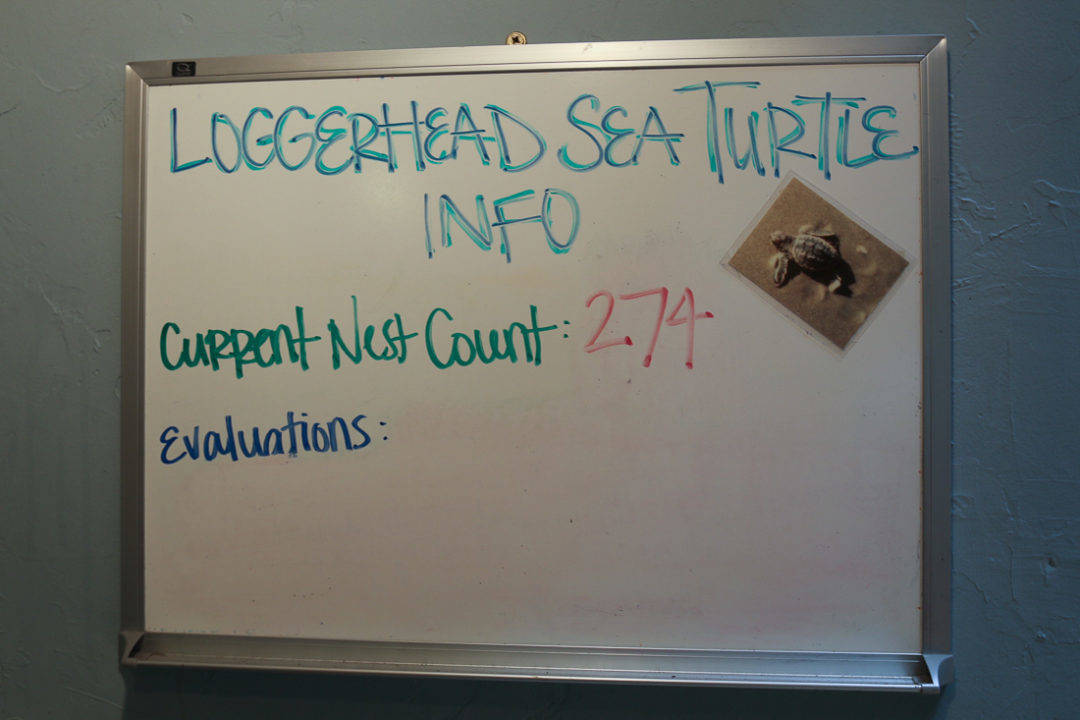 LOGGERHEAD SEA TURTLE
INFO
Current Nest Count: 274
Evaluations: